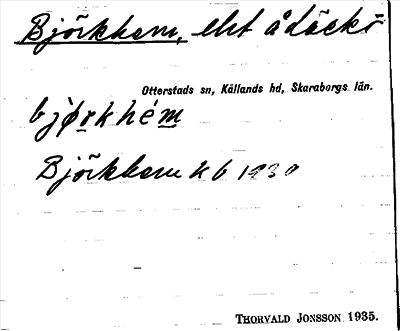 Björkhem, elst å däckr
Otterstads sn, Kållands hd, Skaraborgs län.
bjørkhém
Björkhem kb 1930
THORVALD JONSSON 1935.